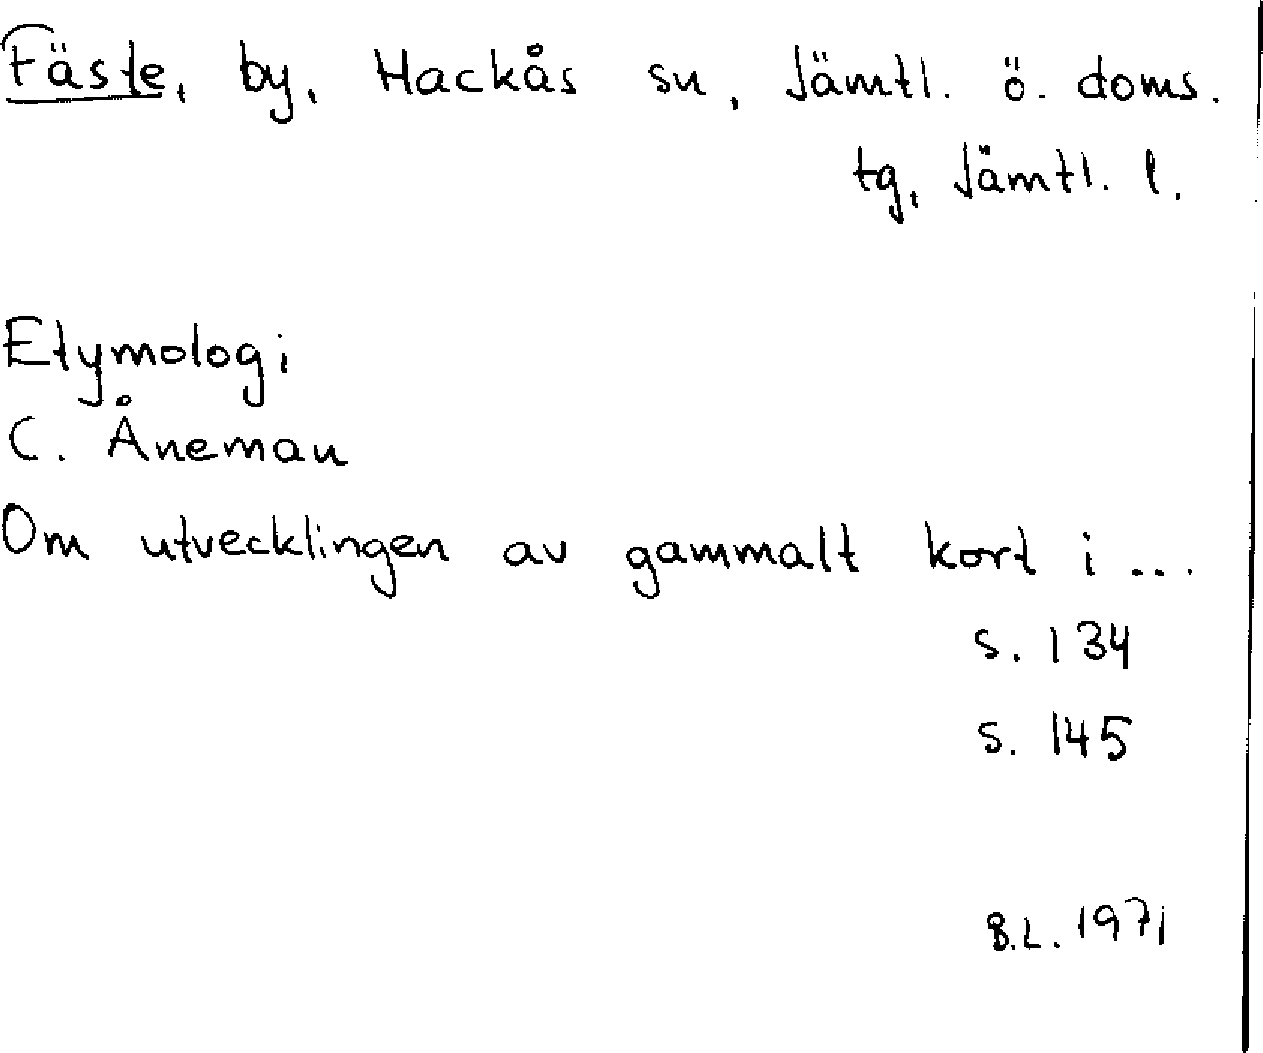 Fäste, by, Hackås sn, Jämtl. ö. doms.
tg, Jämtl. l.
Etymologi
C. Åneman
Om utvecklingen av gammalt kort i ...
s. 134
s. 145
B.L. 1971